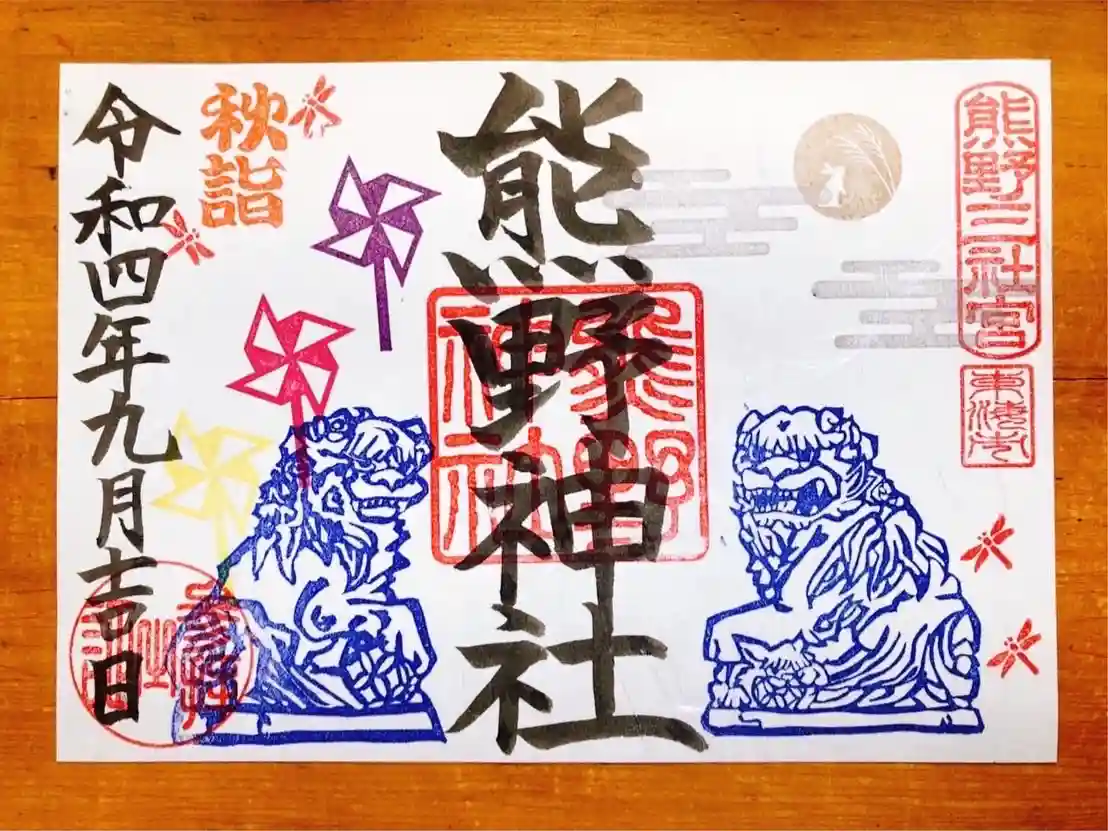 熊野三社宮
東海市
熊野神社
熊野
神社
秋詣
令和四年九月吉日